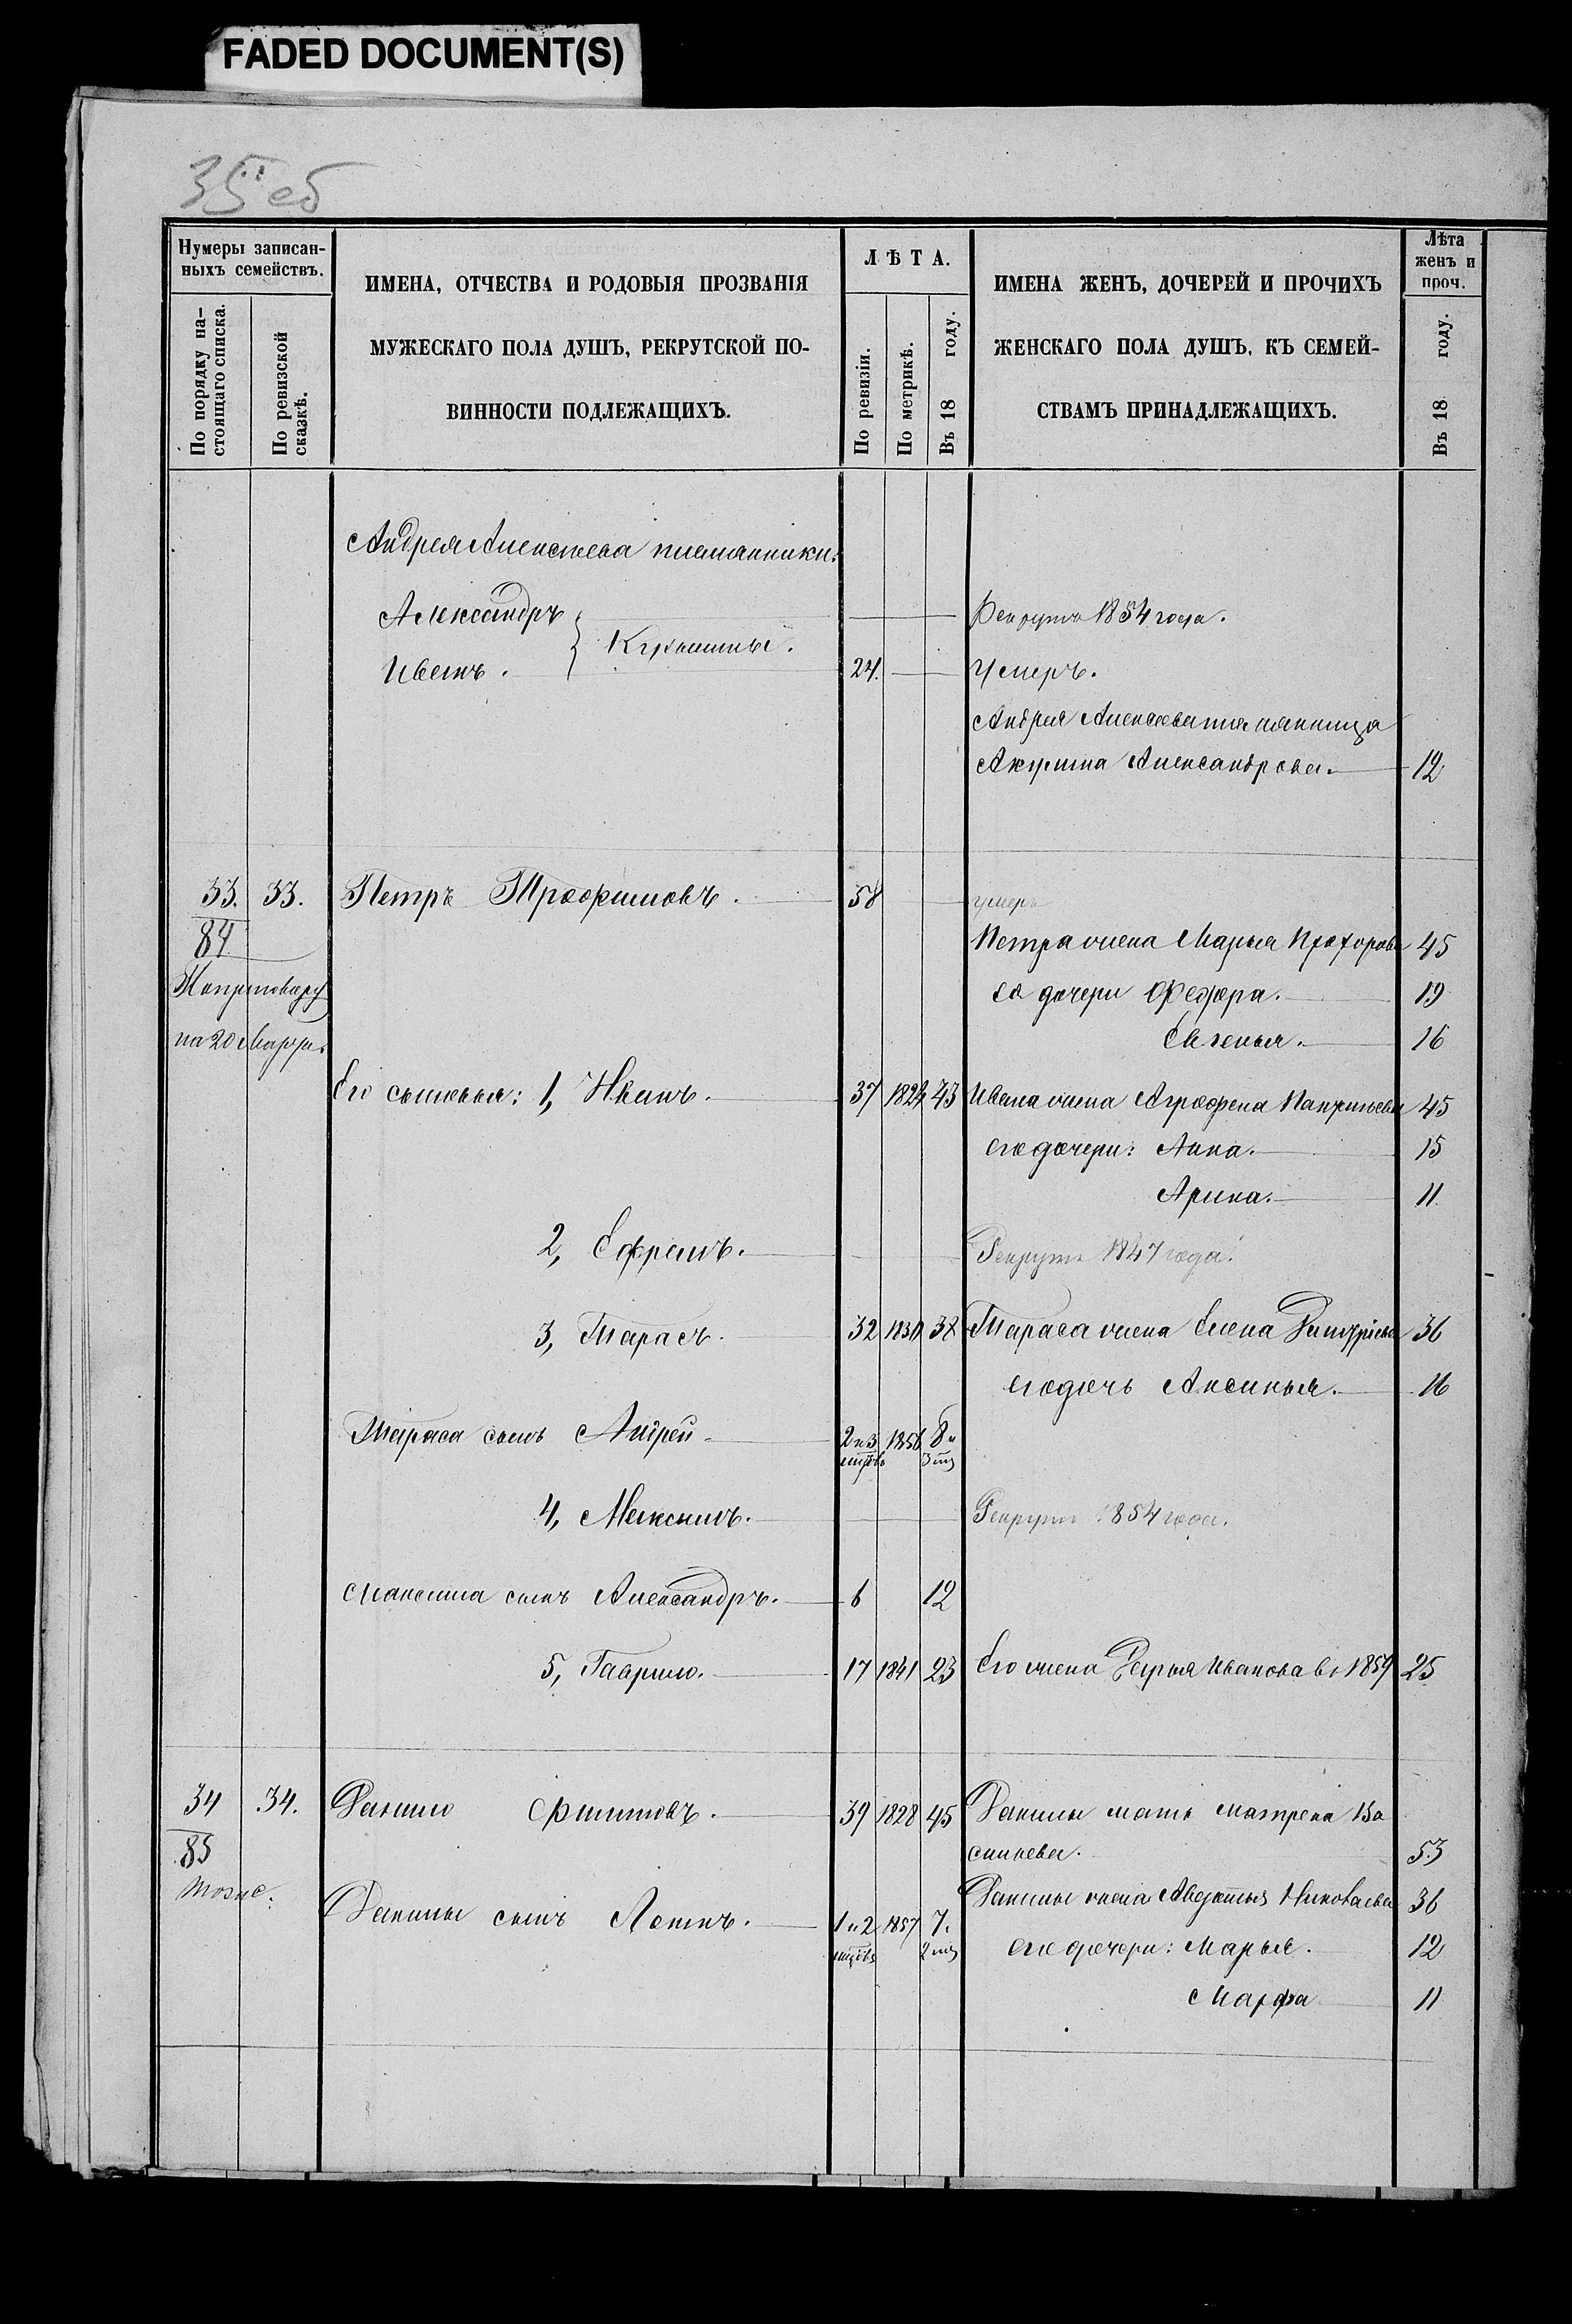 FADED DOCUMENT(S)
35 об
Нумеры записан-
ныхъ семействъ.
По порядку на-
стоящаго списка.
По ревизской
сказкѣ.
ИМЕНА, ОТЧЕСТВА И РОДОВЫЯ ПРОЗВАНІЯ
МУЖЕСКАГО ПОЛА ДУШЪ, РЕКРУТСКОЙ ПО-
ВИННОСТИ ПОДЛЕЖАЩИХЪ.
ЛѢТА.
По ревизіи.
По метрикѣ.
Въ 18 году.
ИМЕНА ЖЕНЪ, ДОЧЕРЕЙ И ПРОЧИХЪ
ЖЕНСКАГО ПОЛА ДУШЪ, КЪ СЕМЕЙ-
СТВАМЪ ПРИНАДЛЕЖАЩИХЪ.
Лѣта
женъ и
проч.
Въ 18 году.
Андрея Алексѣева племянники:
Александръ Рекрутъ 1854 года.
Иванъ. 24. Умеръ.
Андрея Алексѣева племянница
Акулина Александрова. 12
33. 33. Петръ Трофимовъ. 58 умеръ
84
Петра жена Марья Прохорова 45
его дочери Федора. 19
Евгенья. 16
на 20 
Его сыновья: 1, Иванъ. 37 1821 43 Ивана жена Аграфена 45
его дочери: Анна. 15
Арина. 11
2, Ефремъ. Рекрутъ 1847 года.
3, Тарасъ. 32 1830 38 Тараса жена Елена Дмитріева 36
его дочь Аксинья. 16
Тараса сынъ Андрей 2 и 3 1856 8 и
мѣсцовъ 3 мѣ
4, Максимъ. Рекрутъ 1854 года.
Максима сынъ Александръ. 6 12
5, Гаврило. 17 1841 23 Его жена Дарья Иванова въ 1859 25
34 34. Данило Филиповъ. 39 1828 45 Данилы мать Матрена Ва
85 сильева. 53
тоже. Данилы жена Авдотья Николаева 36
Данилы сынъ 1 и 2 1857 7 и
мѣсцовъ 2 мѣ
его дочери: Марья. 12
Марфа 11